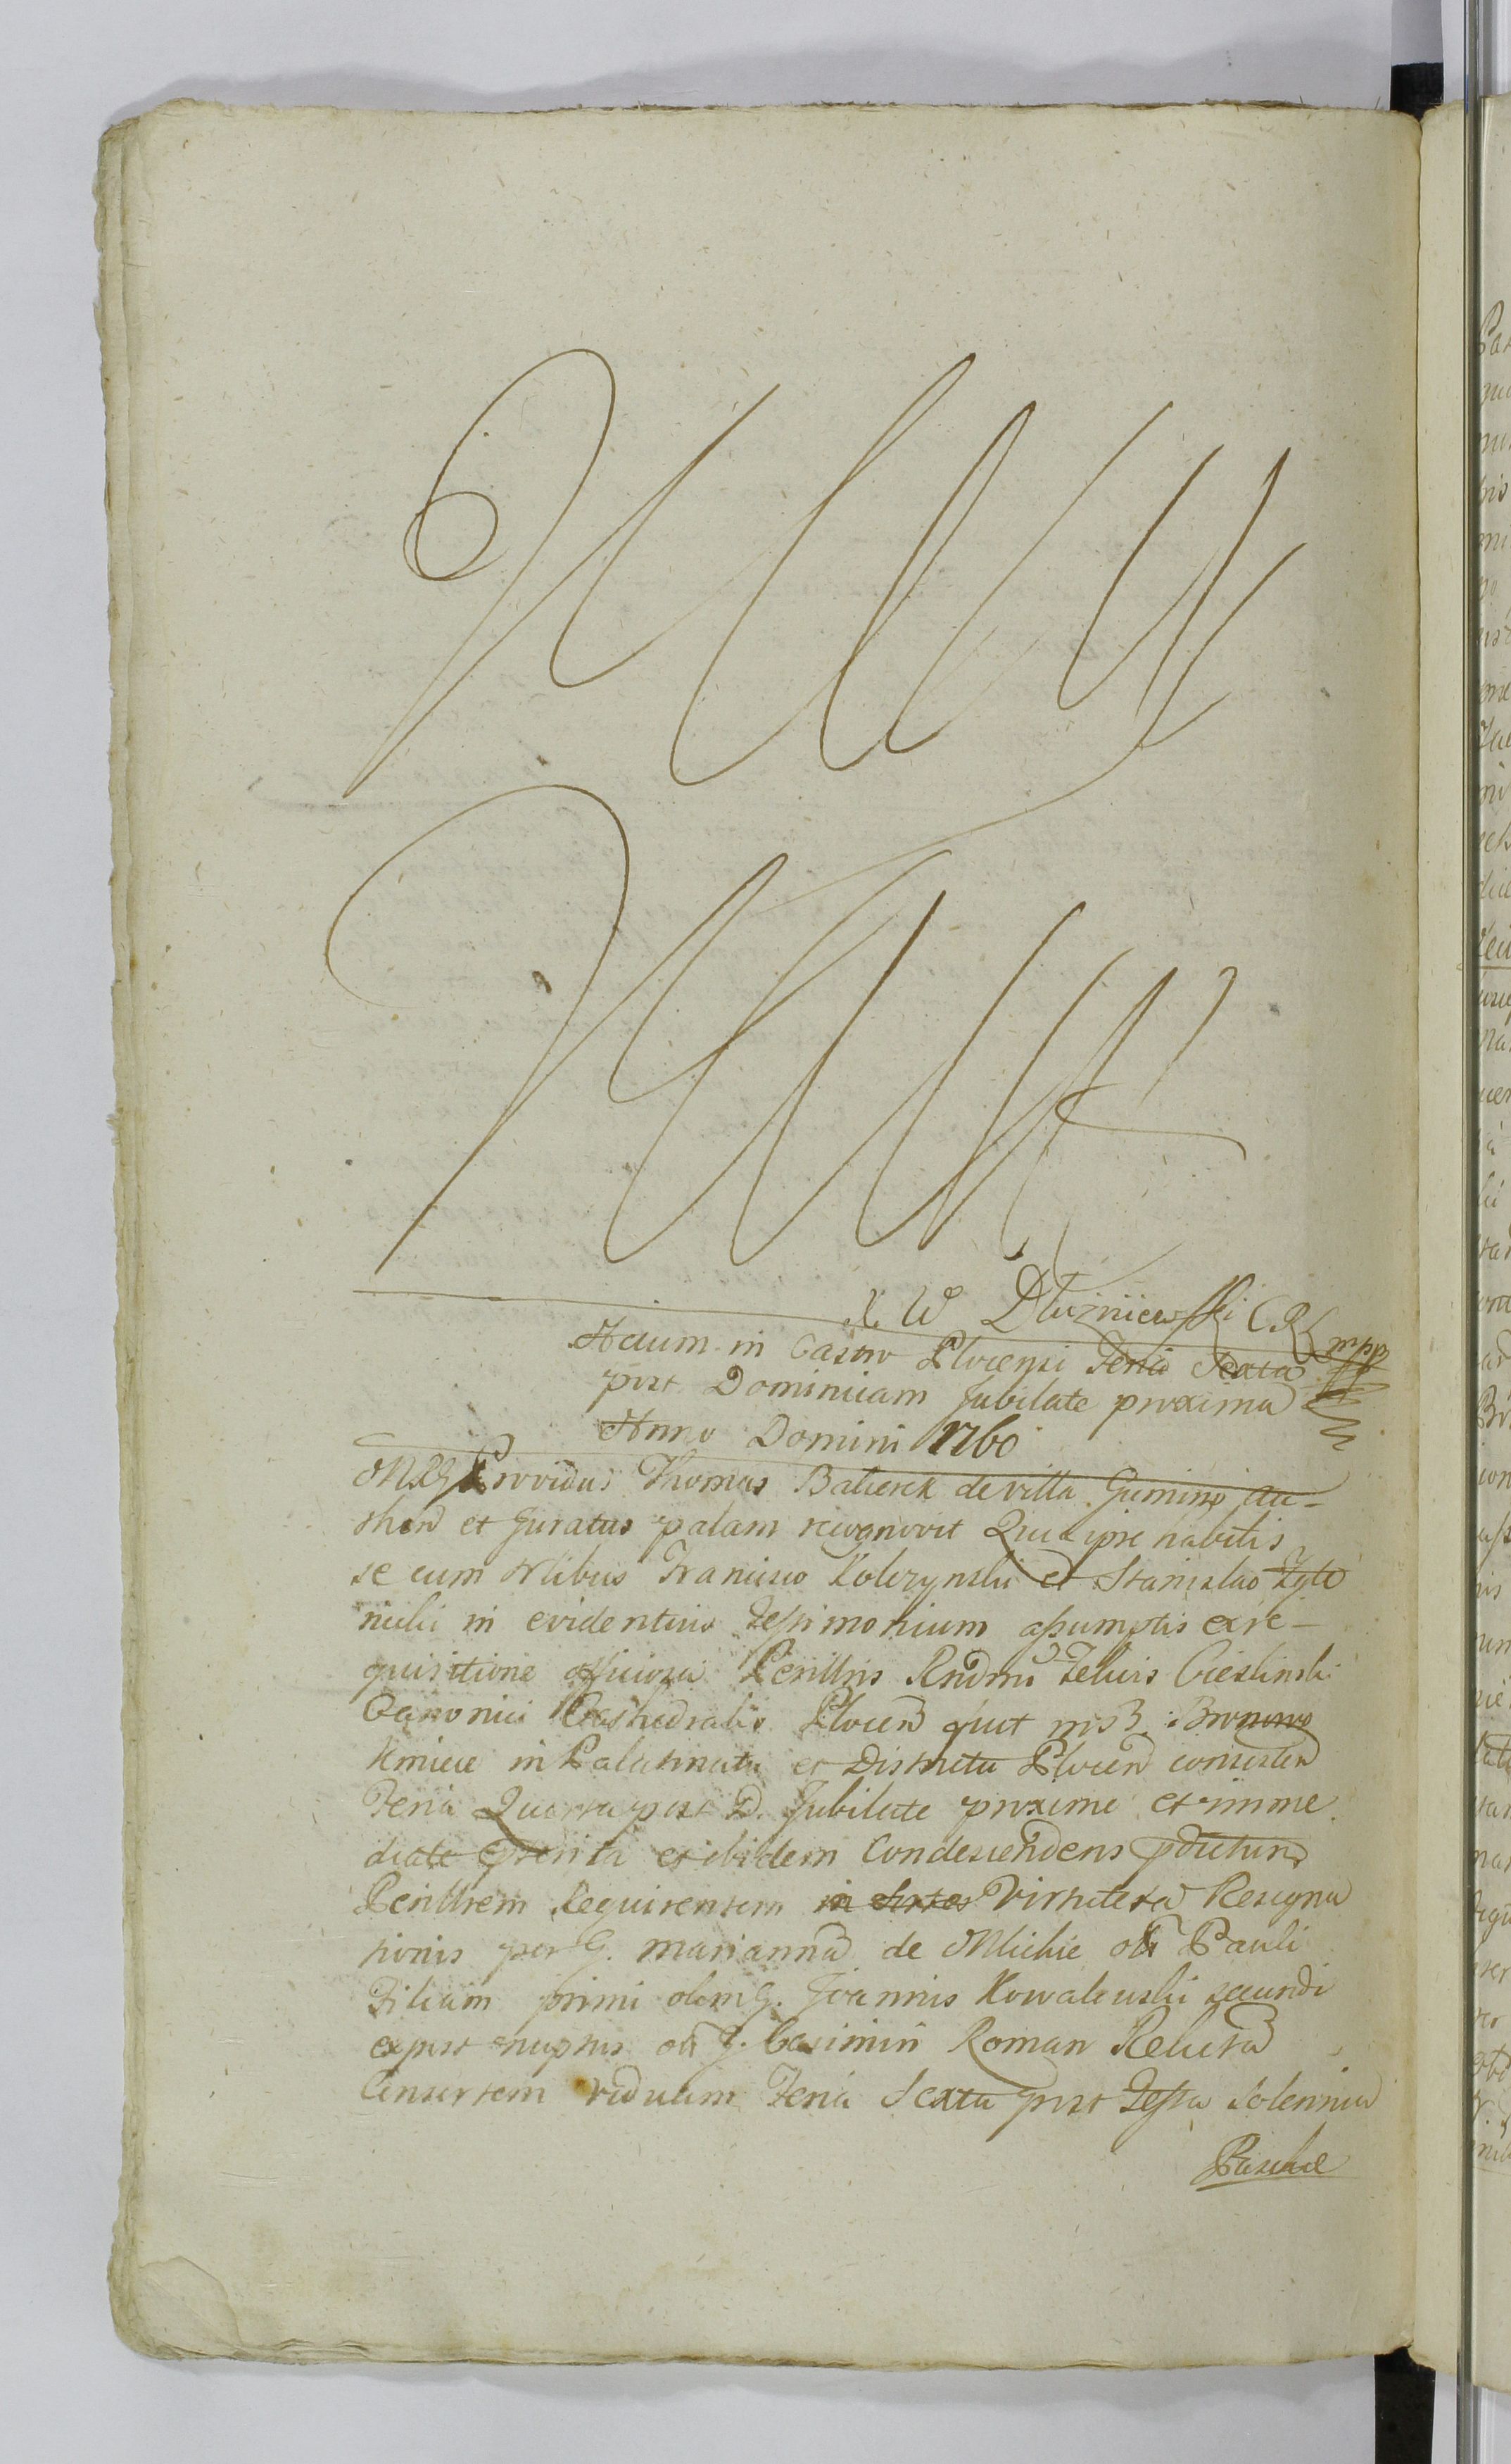 X. W Dłuzniewski C. R. mpp
Actum in Castro Plocensi Feria Sexta
post Dominicam Jubilate proxima
Anno Domini 1760
Providus Thomas Balicek de villa Gumino au-
then et Juratus palam recognovit Quia ipse habitis
se cum Nlibus Francisco Kolczynski et Stanislao Zyto
nicki in evidentius Testimonium assumptis ex re-
quisitione officiosa Perillris Rndmi Felicis Cieslinski
Canonici Cathedralis Plocen Bronowo
Kmiece in Palatinatu et Districtu Plocen consisten
Feria Quarta post D. Jubilate proxime et imme
diate prterita et ibidem Condescendens pdictum
Perillrem Requirentem Virtute Resigna
tionis per G. Mariannam de Mlickie olim Pauli
Filiam primi olim G. Joannis Kowalewski secundi
expost nuptus olim G. Casimiri Roman Relictam
Consortem viduam Feria Sexta post Festa Solennia
Paschae